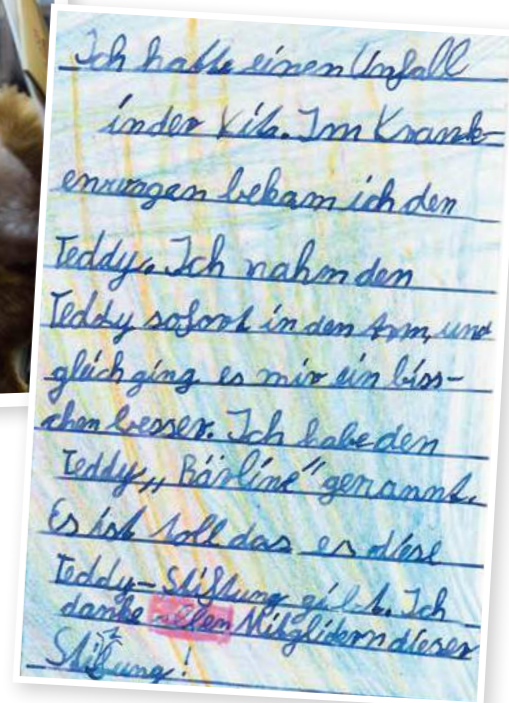 Ich hatte einen Unfall
in der Kita. Im Krank-
enwagen bekam ich den
Teddy. Ich nahm den
Teddy sofort in den Arm, und
gleich ging es mir ein biss-
chen besser. Ich habe den
Teddy „Bärline" genannt.
Es ist toll das es diese
Teddy-Stiftung gibt. Ich
danke allen Mitglidern dieser
Stifung!